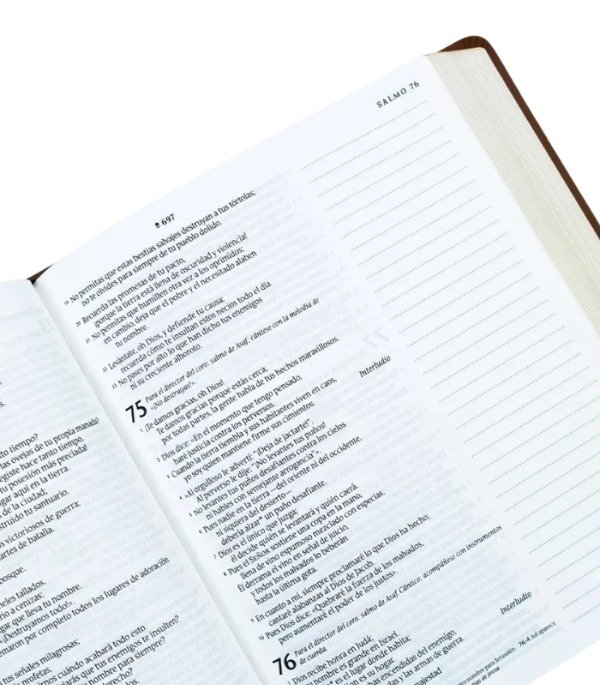 SALMO 76
697
¹⁹ No permitas que estas bestias salvajes destruyan a tus tórtolas;
no te olvides para siempre de tu pueblo dolido.
²⁰ Recuerda las promesas de tu pacto,
¡porque la tierra está llena de oscuridad y violencia!
²¹ No permitas que humillen otra vez a los oprimidos;
en cambio, deja que el pobre y el necesitado alaben
tu nombre.
²² Levántate, oh Dios, y defiende tu causa;
recuerda cómo te insultan estos necios todo el día.
²³ No pases por alto lo que han dicho tus enemigos
ni su creciente alboroto.
75 Para el director del coro: salmo de Asaf; cántese con la melodía de
«¡No destruyas!».
¹ ¡Te damos gracias, oh Dios!
Te damos gracias porque estás cerca;
por todas partes, la gente habla de tus hechos maravillosos.
² Dios dice: «En el momento que tengo pensado,
haré justicia contra los perversos.
³ Cuando la tierra tiembla y sus habitantes viven en caos,
yo soy quien mantiene firme sus cimientos.
Interludio
⁴ »Al orgulloso le advertí: “¡Deja de jactarte!”.
Al perverso le dije: “¡No levantes tus puños!
⁵ No levantes tus puños desafiantes contra los cielos
ni hables con semejante arrogancia”».
⁶ Pues nadie en la tierra —del oriente ni del occidente,
ni siquiera del desierto—
debería alzar* un puño desafiante.
⁷ Dios es el único que juzga;
él decide quién se levantará y quién caerá.
⁸ Pues el SEÑOR sostiene una copa en la mano,
llena de vino espumoso mezclado con especias.
Él derrama el vino en señal de juicio,
y todos los malvados lo beberán
hasta la última gota.
⁹ En cuanto a mí, siempre proclamaré lo que Dios ha hecho;
cantaré alabanzas al Dios de Jacob.
¹⁰ Pues Dios dice: «Quebraré la fuerza de los malvados,
pero aumentaré el poder de los justos».
76 Para el director del coro: salmo de Asaf. Cántico; acompáñese con instrumentos
de cuerda.
Interludio
¹ Dios recibe honra en Judá;
su nombre es grande en Israel.
es el lugar donde habita;
encendidas del enemigo,
y las armas de guerra.
nombre para Jerusalén. 76:4 Así aparece
tiempo?
las ovejas de tu propia manada?
egiste hace tanto tiempo,
tu posesión más preciada!
ugar aquí en la tierra.
de la ciudad;
struido tu santuario.
victoriosos de guerra;
artes de batalla.
osque.
neles tallados.
io a cenizas;
gar que lleva tu nombre.
«¡Destruyamos todo!».
emaron por completo todos los lugares de adoración
us señales milagrosas;
profetas,
irnos cuándo acabará todo esto.
us enemigos te insulten?
nombre para siempre?
derecho?